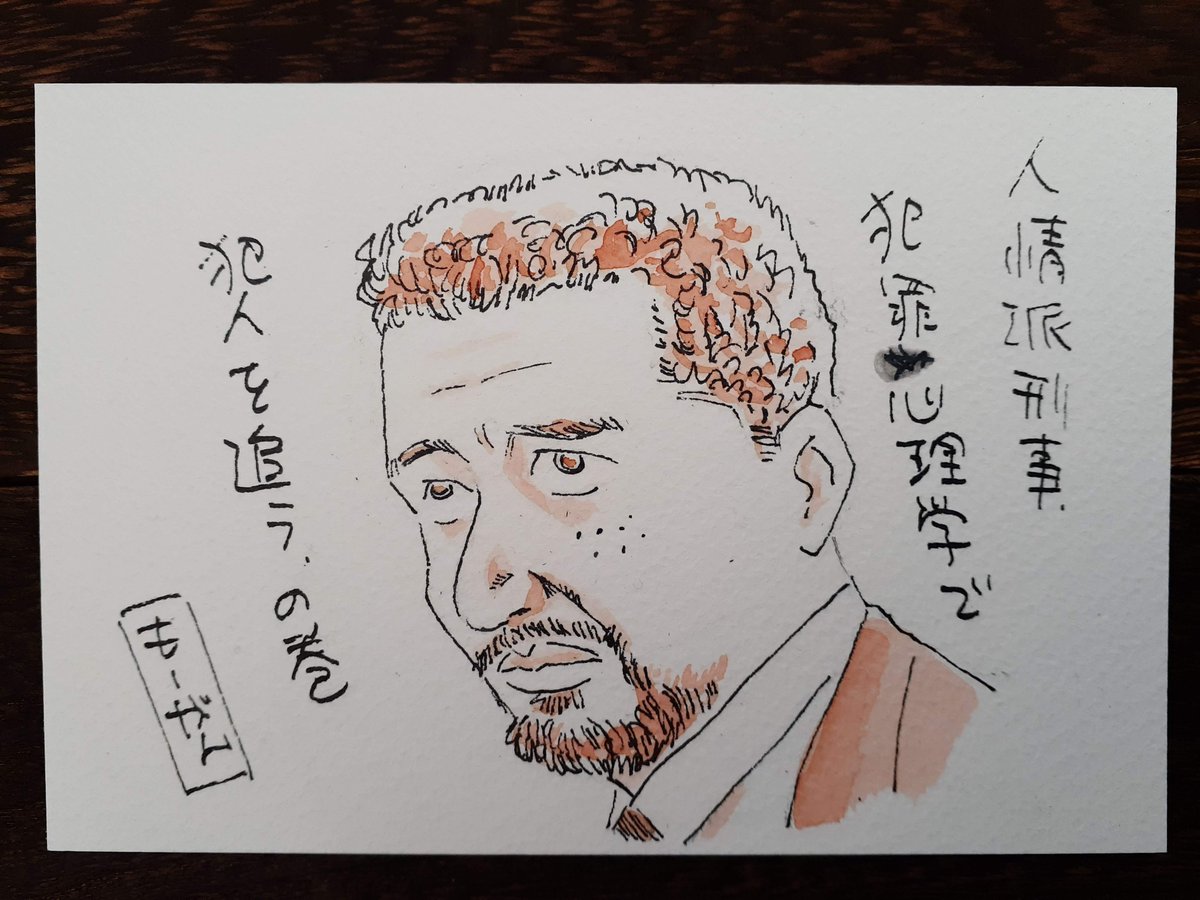 人情派刑事
犯罪心理学で
犯人を追う.の巻